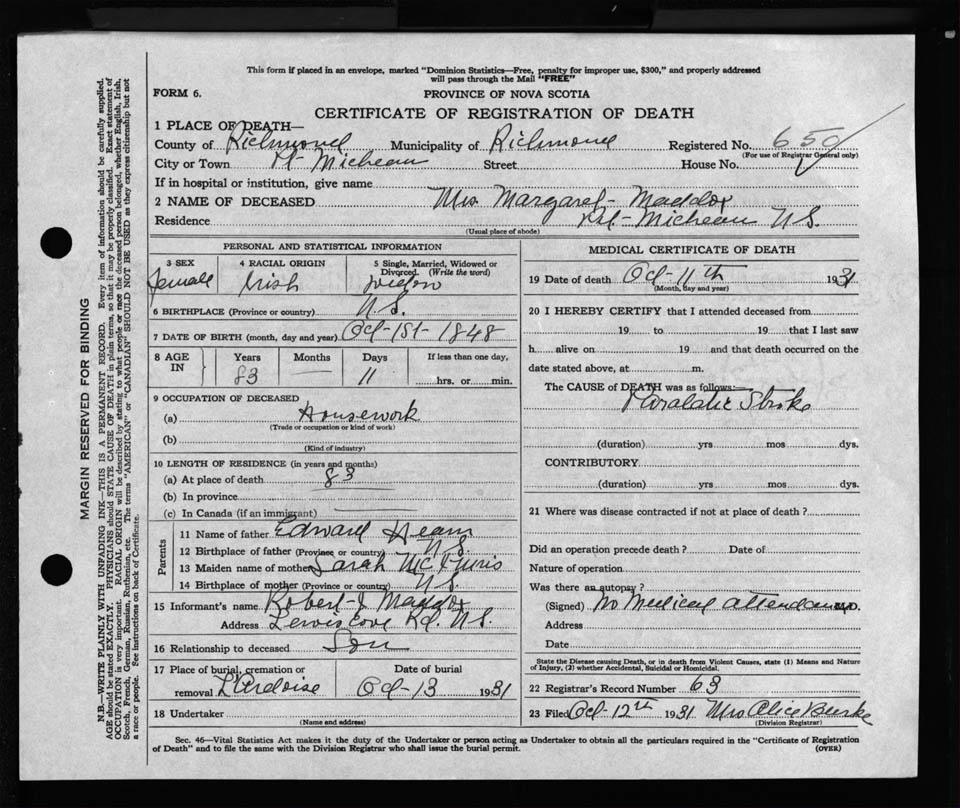 This form if placed in an envelope, marked "Dominion Statistics—Free, penalty for improper use, $300," and properly addressed
will pass through the Mail "FREE"
FORM 6.
PROVINCE OF NOVA SCOTIA
CERTIFICATE OF REGISTRATION OF DEATH
1 PLACE OF DEATH—
County of Richmond Municipality of Richmond Registered No. 650
(For use of Registrar General only)
City or Town Pt Micheau Street House No.
If in hospital or institution, give name
2 NAME OF DECEASED Mrs Margaret Maddox
Residence Pt-Micheau N.S.
(Usual place of abode)
PERSONAL AND STATISTICAL INFORMATION
3 SEX
Femall
4 RACIAL ORIGIN
Irish
5 Single, Married, Widowed or
Divorced. (Write the word)
6 BIRTHPLACE (Province or country) N.S.
7 DATE OF BIRTH (month, day and year) Oct-1st-1848
8 AGE
IN
Years Months Days If less than one day,
83 — 11 hrs. or min.
9 OCCUPATION OF DECEASED
(a) Housework
(Trade or occupation or kind of work)
(b)
(Kind of industry)
10 LENGTH OF RESIDENCE (in years and months)
(a) At place of death 83
(b) In province
(c) In Canada (if an immigrant)
Parents
11 Name of father Edward Hearn
12 Birthplace of father (Province or country) N.S.
13 Maiden name of mother Sarah
14 Birthplace of mother (Province or country) N.S.
15 Informant's name Robert J Maddox
Address Lewis Cove Rd. N.S.
16 Relationship to deceased Son
17 Place of burial, cremation or
removal L'Ardoise
Date of burial
Oct-13 1931
18 Undertaker
(Name and address)
MEDICAL CERTIFICATE OF DEATH
19 Date of death Oct-11th 1931
(Month, day and year)
20 I HEREBY CERTIFY that I attended deceased from
19 to 19 that I last saw
h alive on 19 and that death occurred on the
date stated above, at m.
The CAUSE of DEATH was as follows:—
Paralatic Stroke
(duration) yrs mos dys.
CONTRIBUTORY
(duration) yrs mos dys.
21 Where was disease contracted if not at place of death?
Did an operation precede death? Date of
Nature of operation
Was there an autopsy?
(Signed) No Medical attendance M.D.
Address
Date
State the Disease causing Death, or in death from Violent Causes, state (1) Means and Nature
of Injury, (2) whether Accidental, Suicidal or Homicidal.
22 Registrar's Record Number 63
23 Filed Oct-12th 1931 Mrs Alice Burke
(Division Registrar)
Sec. 46—Vital Statistics Act makes it the duty of the Undertaker or person acting as Undertaker to obtain all the particulars required in the "Certificate of Registration
of Death" and to file the same with the Division Registrar who shall issue the burial permit.
(OVER)
MARGIN RESERVED FOR BINDING
N.B.—WRITE PLAINLY WITH UNFADING INK—THIS IS A PERMANENT RECORD. Every item of information should be carefully supplied.
AGE should be stated EXACTLY. PHYSICIANS should STATE CAUSE OF DEATH in plain terms, so that it may be properly classified. Exact statement of
OCCUPATION is very important. RACIAL ORIGIN will be described by stating to what people or race the deceased person belonged, whether English, Irish,
Scotch, French, German, Russian, Ruthenian, etc. The terms "AMERICAN" or "CANADIAN" SHOULD NOT BE USED as they express citizenship but not
a race or people. See instructions on back of Certificate.